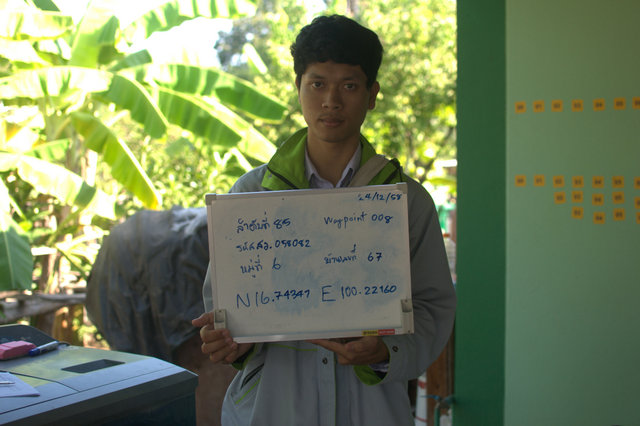 24/12/58
ลำดับที่ 85 Waypoint 008
รหัสสว. 058082
หมู่ที่ 6 บ้านเลขที่ 67
N16.74347 E 100.22160